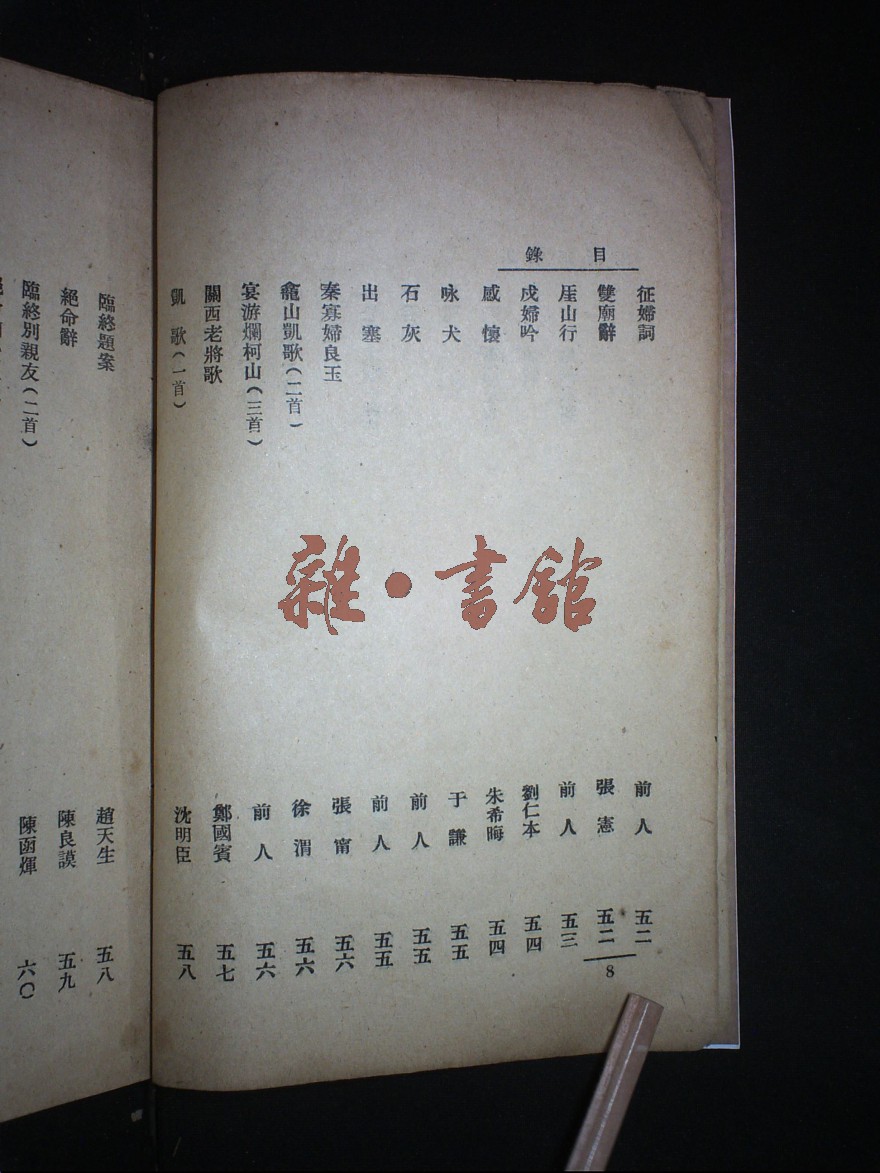 目錄
征婦詞 前人 五二
雙廟辭 張憲 五二
厓山行 前人 五三
戍婦吟 劉仁本 五四
感懷 朱希晦 五四
咏犬 于謙 五五
石灰 前人 五五
出塞 前人 五五
秦寡婦良玉 張甯 五六
龕山凱歌(二首) 徐渭 五六
宴游爛柯山(三首) 前人 五六
關西老將歌 鄭國賓 五七
凱歌(一首) 沈明臣 五八
8
臨終題案 趙天生 五八
絕命辭 陳良謨 五九
臨終別親友(二首) 陳函煇 六〇
雜·書館